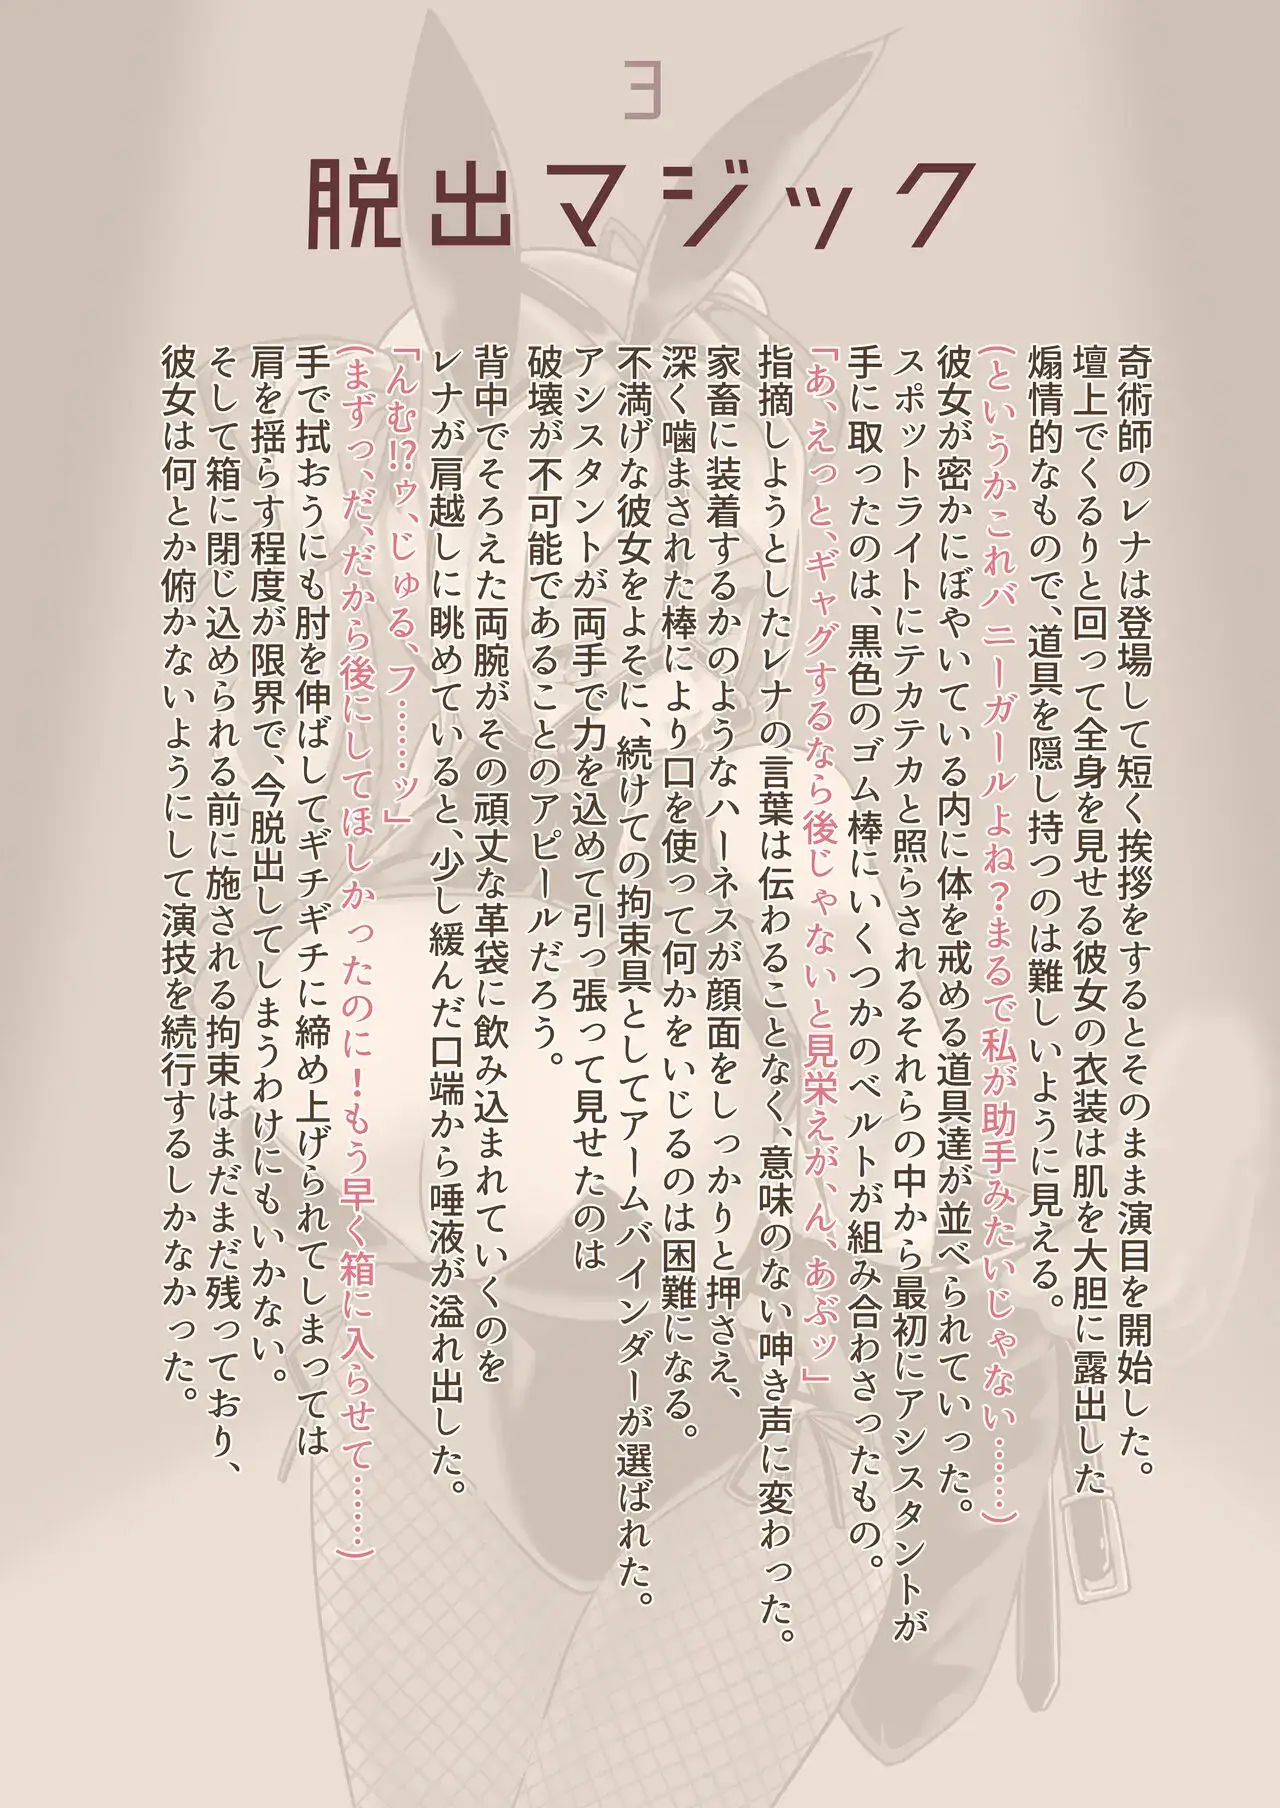 3
脱出マジック
奇術師のレナは登場して短く挨拶をするとそのまま演目を開始した。
壇上でくるりと回って全身を見せる彼女の衣装は肌を大胆に露出した
煽情的なもので、道具を隠し持つのは難しいように見える。
(というかこれバニーガールよね？まるで私が助手みたいじゃない……)
彼女が密かにぼやいている内に体を戒める道具達が並べられていった。
スポットライトにテカテカと照らされるそれらの中から最初にアシスタントが
手に取ったのは、黒色のゴム棒にいくつかのベルトが組み合わさったもの。
「あ、えっと、ギャグするなら後じゃないと見栄えが、ん、あぶッ」
指摘しようとしたレナの言葉は伝わることなく、意味のない呻き声に変わった。
家畜に装着するかのようなハーネスが顔面をしっかりと押さえ、
深く噛まされた棒により口を使って何かをいじるのは困難になる。
不満げな彼女をよそに、続けての拘束具としてアームバインダーが選ばれた。
アシスタントが両手で力を込めて引っ張って見せたのは
破壊が不可能であることのアピールだろう。
背中でそろえた両腕がその頑丈な革袋に飲み込まれていくのを
レナが肩越しに眺めていると、少し緩んだ口端から唾液が溢れ出した。
「んむ!?ゥ、じゅる、フ……ッ」
(まずっ、だ、だから後にしてほしかったのに！もう早く箱に入らせて……)
手で拭おうにも肘を伸ばしてギチギチに締め上げられてしまっては
肩を揺らす程度が限界で、今脱出してしまうわけにもいかない。
そして箱に閉じ込められる前に施される拘束はまだまだ残っており、
彼女は何とか俯かないようにして演技を続行するしかなかった。